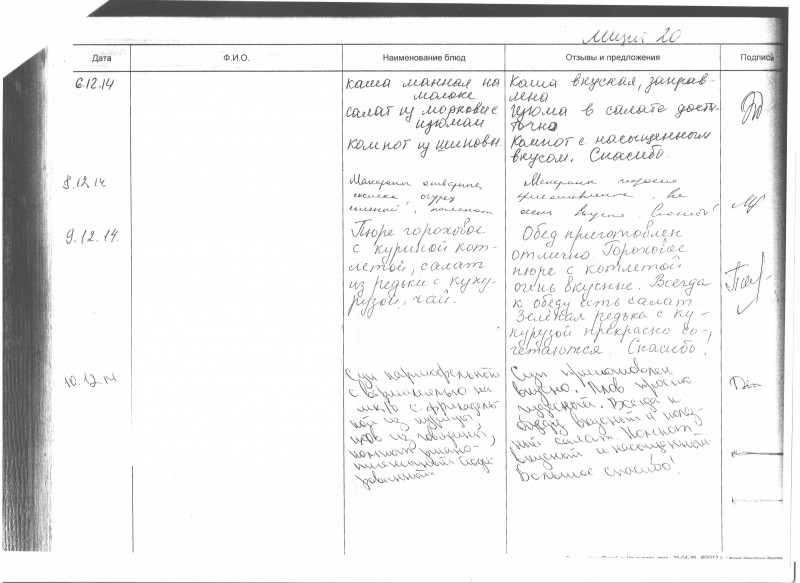 Дата
Ф.И.О.
Наименование блюд
Отзывы и предложения
Подпись
6.12.14
каша манная на
молоке
салат из моркови с
изюмом
компот из шиповн.
Каша вкусная, заправ-
лена
изюма в салате доста-
точно
Компот с насыщенным
вкусом. Спасибо.
8.12.14
Макароны отварные,
сосиска, огурец
соленый,
Макароны хорошо
приготовлены, все
очень вкусно. Спасибо!
9.12.14.
Пюре гороховое
с куриной кот-
летой, салат
из редьки с куку-
рузой, чай.
Обед приготовлен
отлично. Гороховое
пюре с котлетой
очень вкусные. Всегда
к обеду есть салат.
Зелёная редька с ку-
курузой прекрасно со-
четаются. Спасибо!
10.12.14
Суп картофельный
с вермишелью на
мк/б с фрикадель-
кой из курицы,
плов из говядины,
компот, ржано-
пшеничный йоди-
рованный
Суп приготовлен
вкусно. Плов просто
чудесный. Всегда к
обеду вкусный и полез-
ный салат. Компот
вкусный и насыщенный.
Большое спасибо!